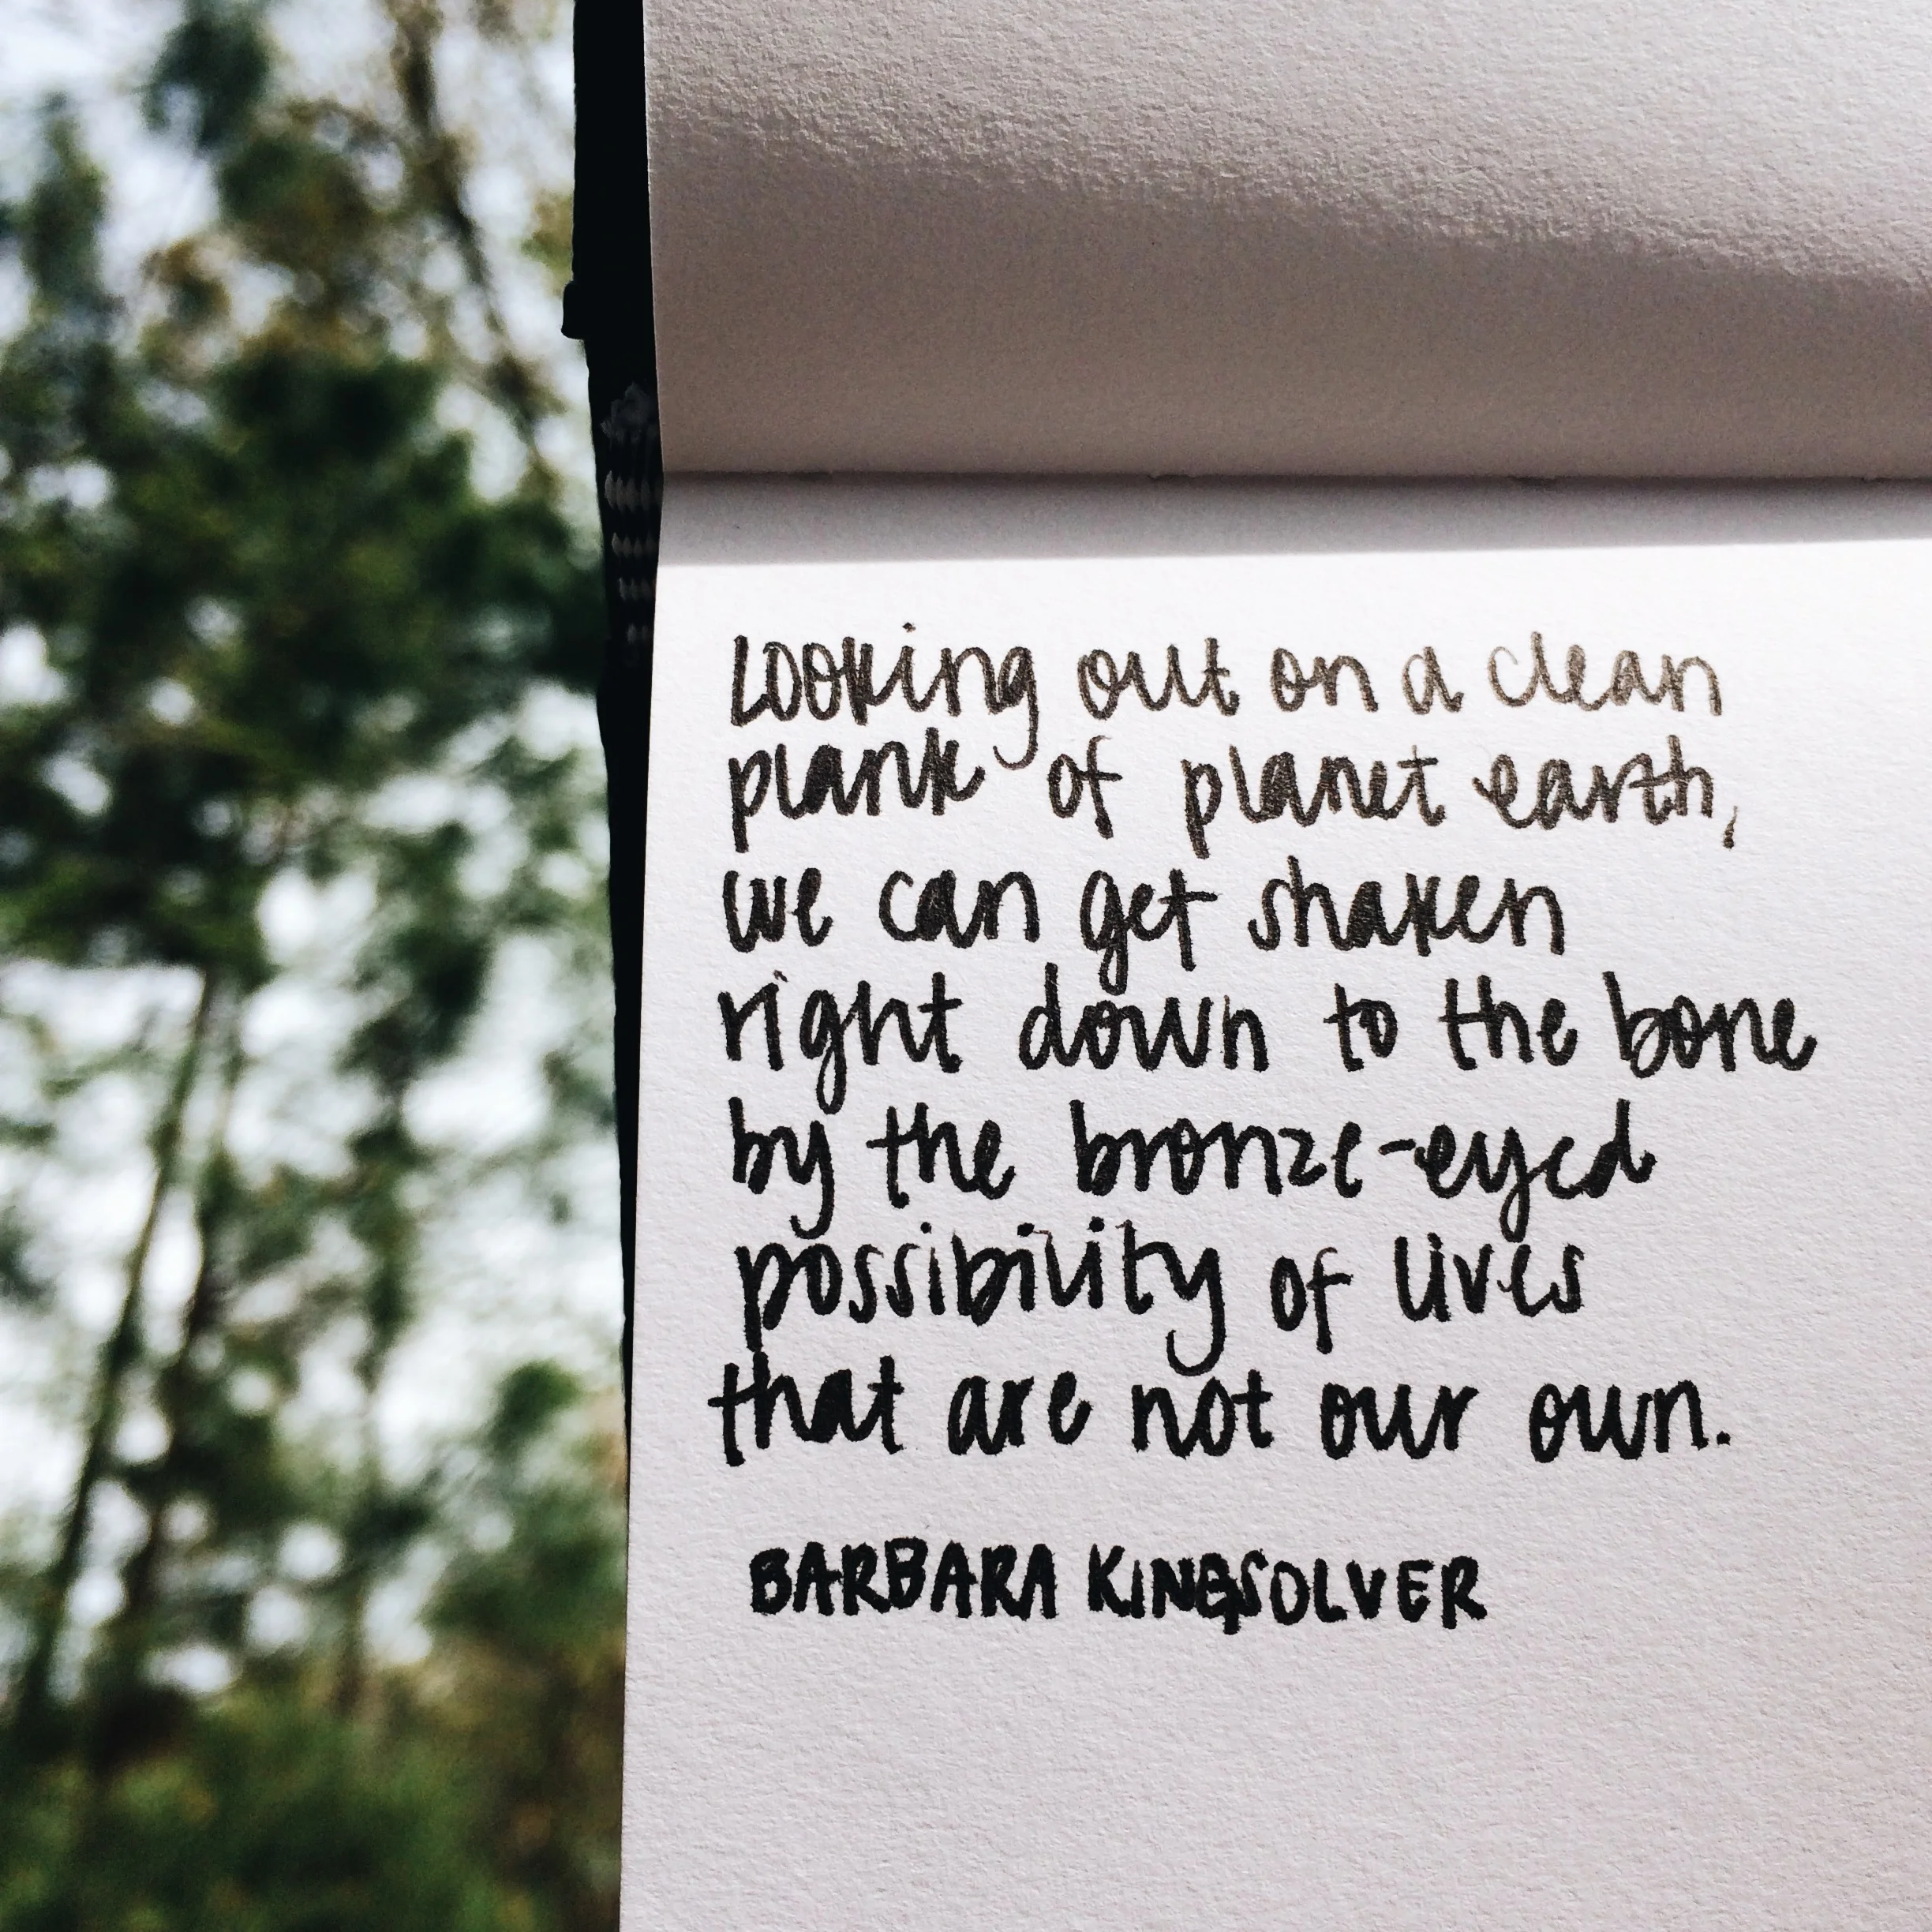 Looking out on a clean
plank of planet earth,
we can get shaken
right down to the bone
by the bronze-eyed
possibility of lives
that are not our own.
BARBARA KINGSOLVER